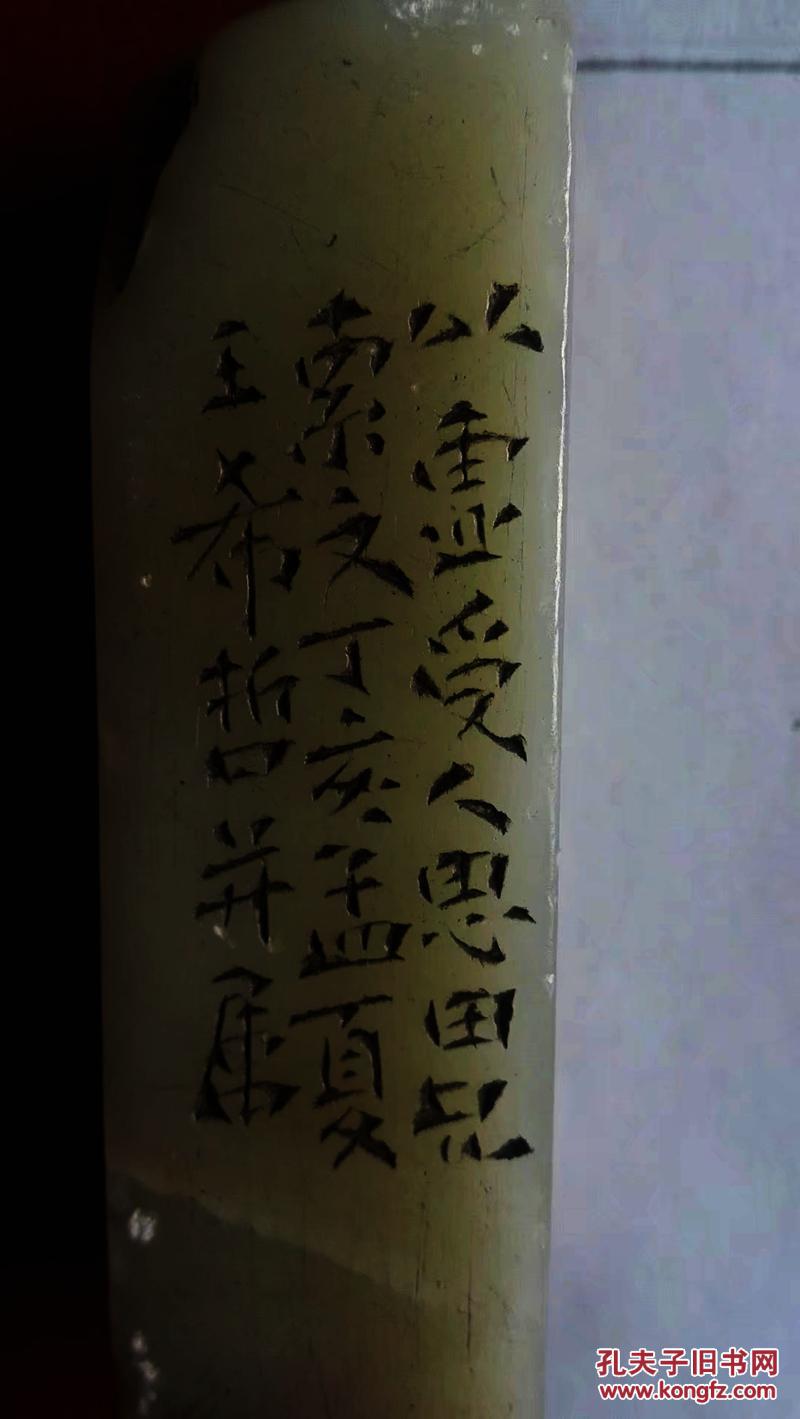 以虚受人思田兄
索文丁亥孟夏
王希哲并属
孔夫子旧书网
www.kongfz.com